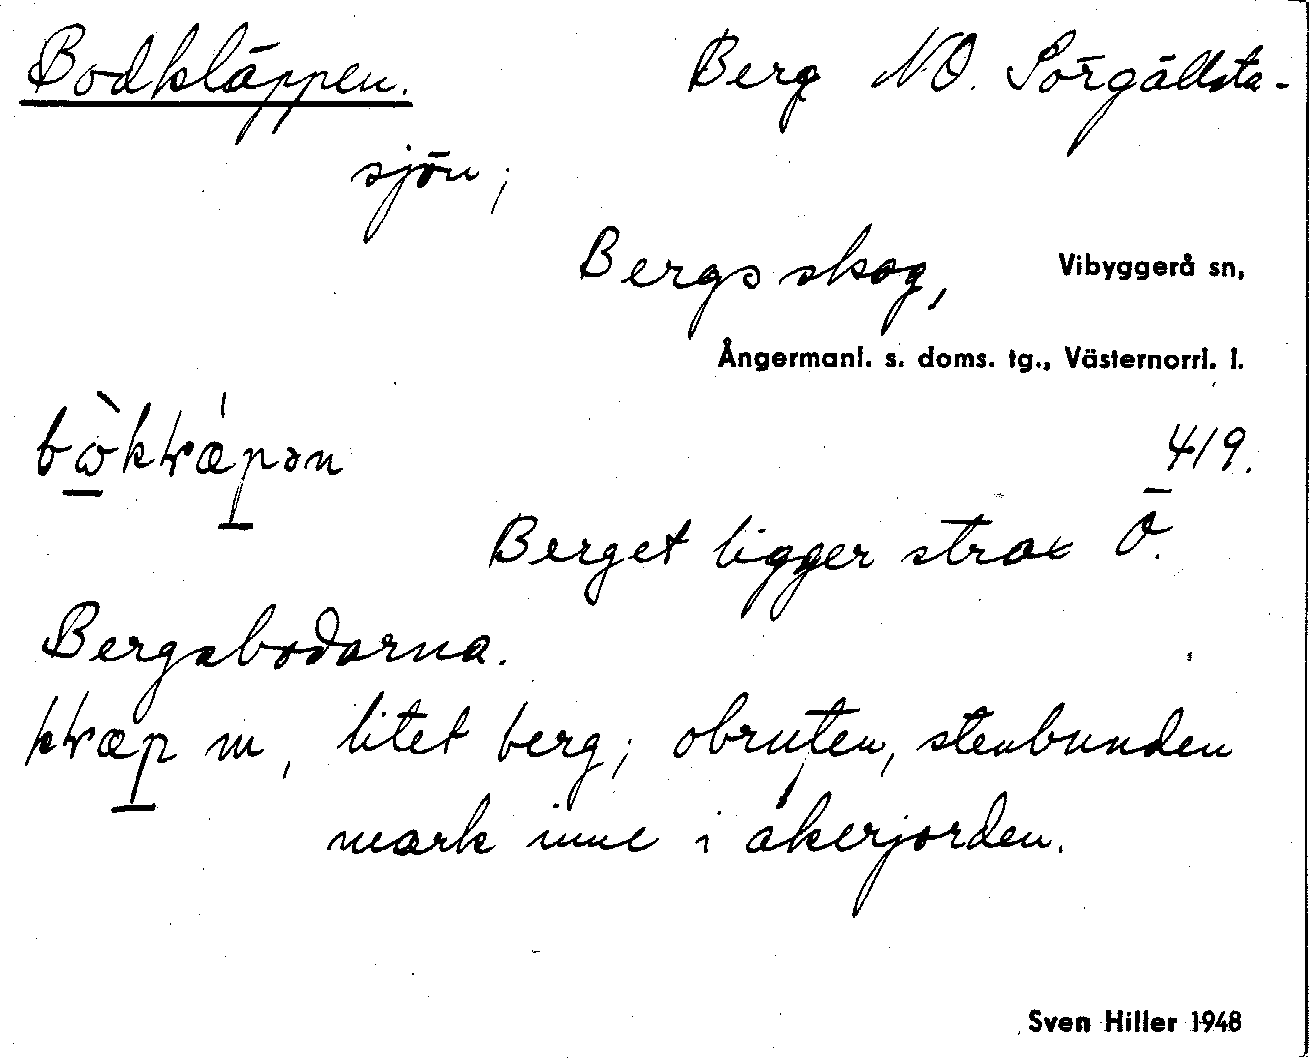 Bodkläppen. Berg NO. Sörgällsta-
sjön;
Bergsskog, Vibyggerå sn,
Ångermanl. s. doms. tg., Västernorrl. l.
419.
Berget ligger strax Ö.
Bergsbodarna.
m, litet berg; obruten, stenbunden
mark inne i åkerjorden.
Sven Hiller 1948